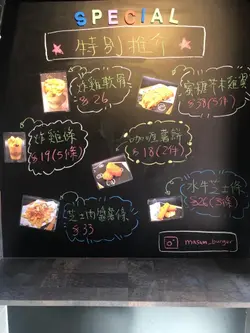 SPECIAL
特別推介
炸雞軟骨
$26
蜜糖芥末雞翼
炸雞條
$19(5條)
咖喱薯餅
$18(2件)
水牛芝士條
芝士肉醬薯條
$33
masun_burger